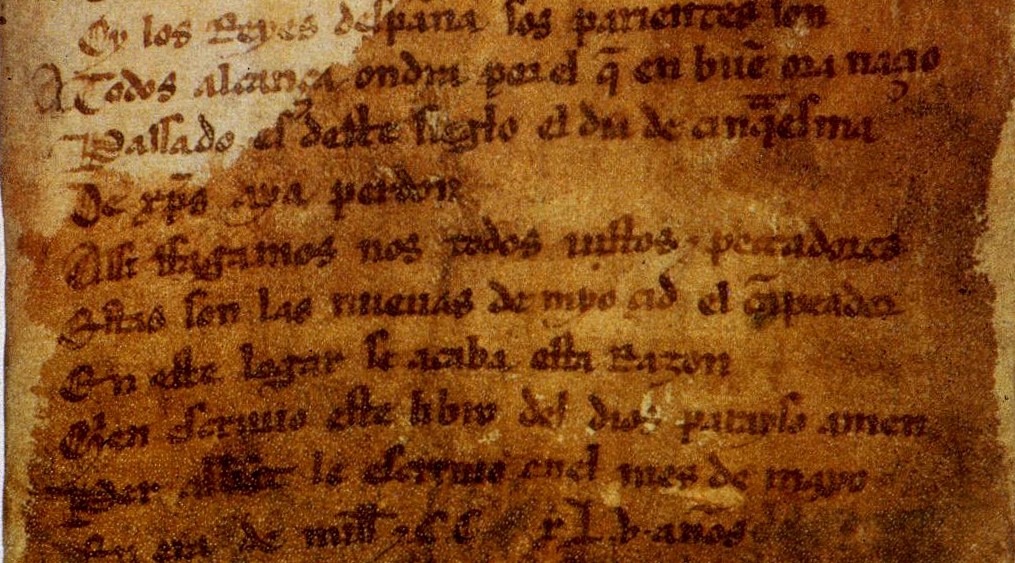 Oy los Reyes despana sos parientes son
A Todos alcança ondra por el q̃ en buẽ ora naçio
Passado es deste sieglo el dia de cinq̃esma
De xp̃s aya perdon
Assi ffagamos nos todos iustos ⁊ peccadores
Estas son las nueuas de myo çid el cãpeador
En este logar se acaba esta Razon
Quien escriuio este libro del dios parayso amen
Per abbat le escriuio enel mes de mayo
En era de mill ⁊ CC xL.v. años